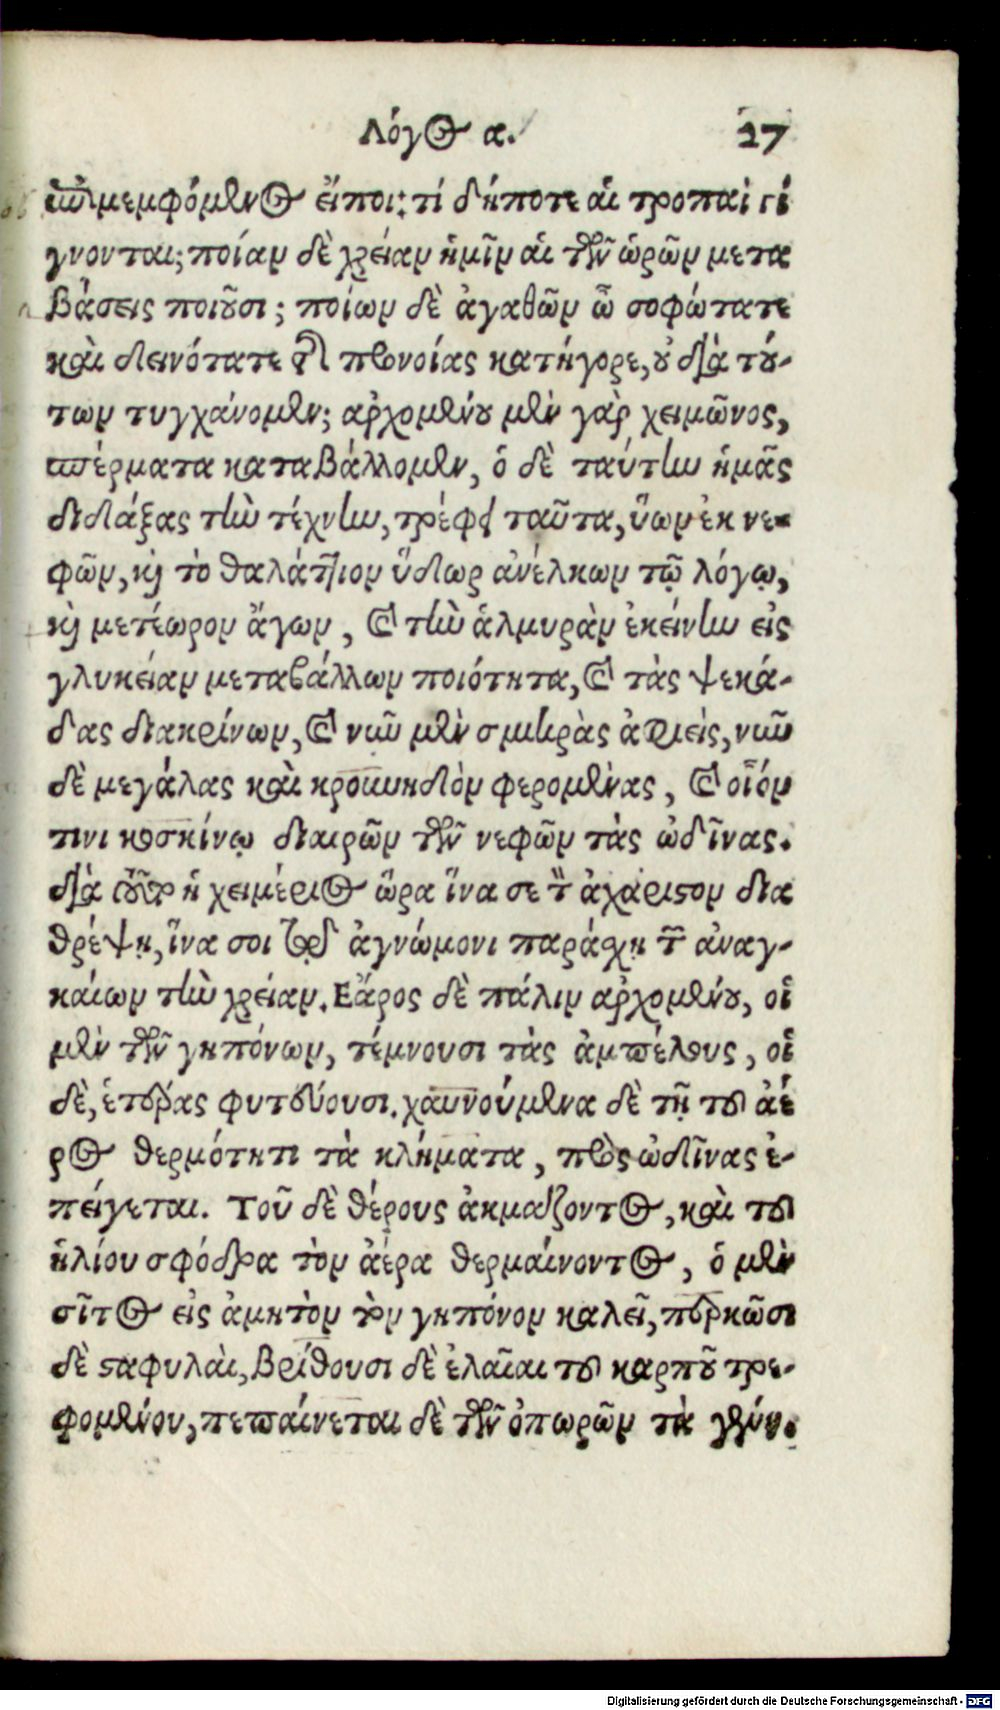 Λόγος α. 27
ἐπιμεμφόμενος εἴποι; τί δήποτε αἱ τροπαὶ γί
γνονται; ποίαν δὲ χρείαν ἡμῖν αἱ τῶν ὡρῶν μετα
βάσεις ποιοῦσι; ποίων δὲ ἀγαθῶν ὦ σοφώτατε
καὶ δεινότατε τῆς προνοίας κατήγορε, οὐ διὰ τού-
των τυγχάνομεν; ἀρχομένου μὲν γὰρ χειμῶνος,
σπέρματα καταβάλλομεν, ὁ δὲ ταύτην ἡμᾶς
διδάξας τὴν τέχνην, τρέφει ταῦτα, ὕων ἐκ νε-
φῶν, καὶ τὸ θαλάττιον ὕδωρ ἀνέλκων τῷ λόγῳ,
καὶ μετέωρον ἄγων, καὶ τὴν ἁλμυρὰν ἐκείνην εἰς
γλυκείαν μεταβάλλων ποιότητα, καὶ τὰς ψεκά-
δας διακρίνων, καὶ νῦν μὲν σμικρὰς ἀφιεὶς, νῦν
δὲ μεγάλας καὶ κρουνηδὸν φερομένας, καὶ οἷόν
τινι κοσκίνῳ διαιρῶν τῶν νεφῶν τὰς ὠδῖνας.
διὰ τοῦτο ἡ χειμέριος ὥρα ἵνα σε τὸν ἀχάριστον δια
θρέψῃ, ἵνα σοι τῷ ἀγνώμονι παράσχῃ τῶν ἀναγ-
καίων τὴν χρείαν. Ἔαρος δὲ πάλιν ἀρχομένου, οἱ
μὲν τῶν γηπόνων, τέμνουσι τὰς ἀμπέλους, οἱ
δὲ, ἑτέρας φυτεύουσι. χαυνούμενα δὲ τῇ τοῦ ἀέ
ρος θερμότητι τὰ κλήματα, πρὸς ὠδῖνας ἐ-
πείγεται. Τοῦ δὲ θέρους ἀκμάζοντος, καὶ τοῦ
ἡλίου σφόδρα τὸν ἀέρα θερμαίνοντος, ὁ μὲν
σῖτος εἰς ἀμητὸν τὸν γηπόνον καλεῖ, περκῶσι
δὲ σταφυλαὶ, βρίθουσι δὲ ἐλαῖαι τοῦ καρποῦ τρε-
φομένου, πεπαίνεται δὲ τῶν ὀπωρῶν τὰ γένη.
Digitalisierung gefördert durch die Deutsche Forschungsgemeinschaft - DFG